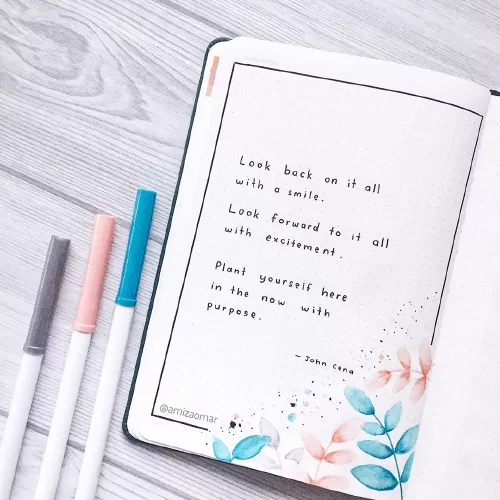 Look back on it all
with a smile.
Look forward to it all
with excitement.
Plant yourself here
in the now with
purpose.
— John Cena
@amizaomar